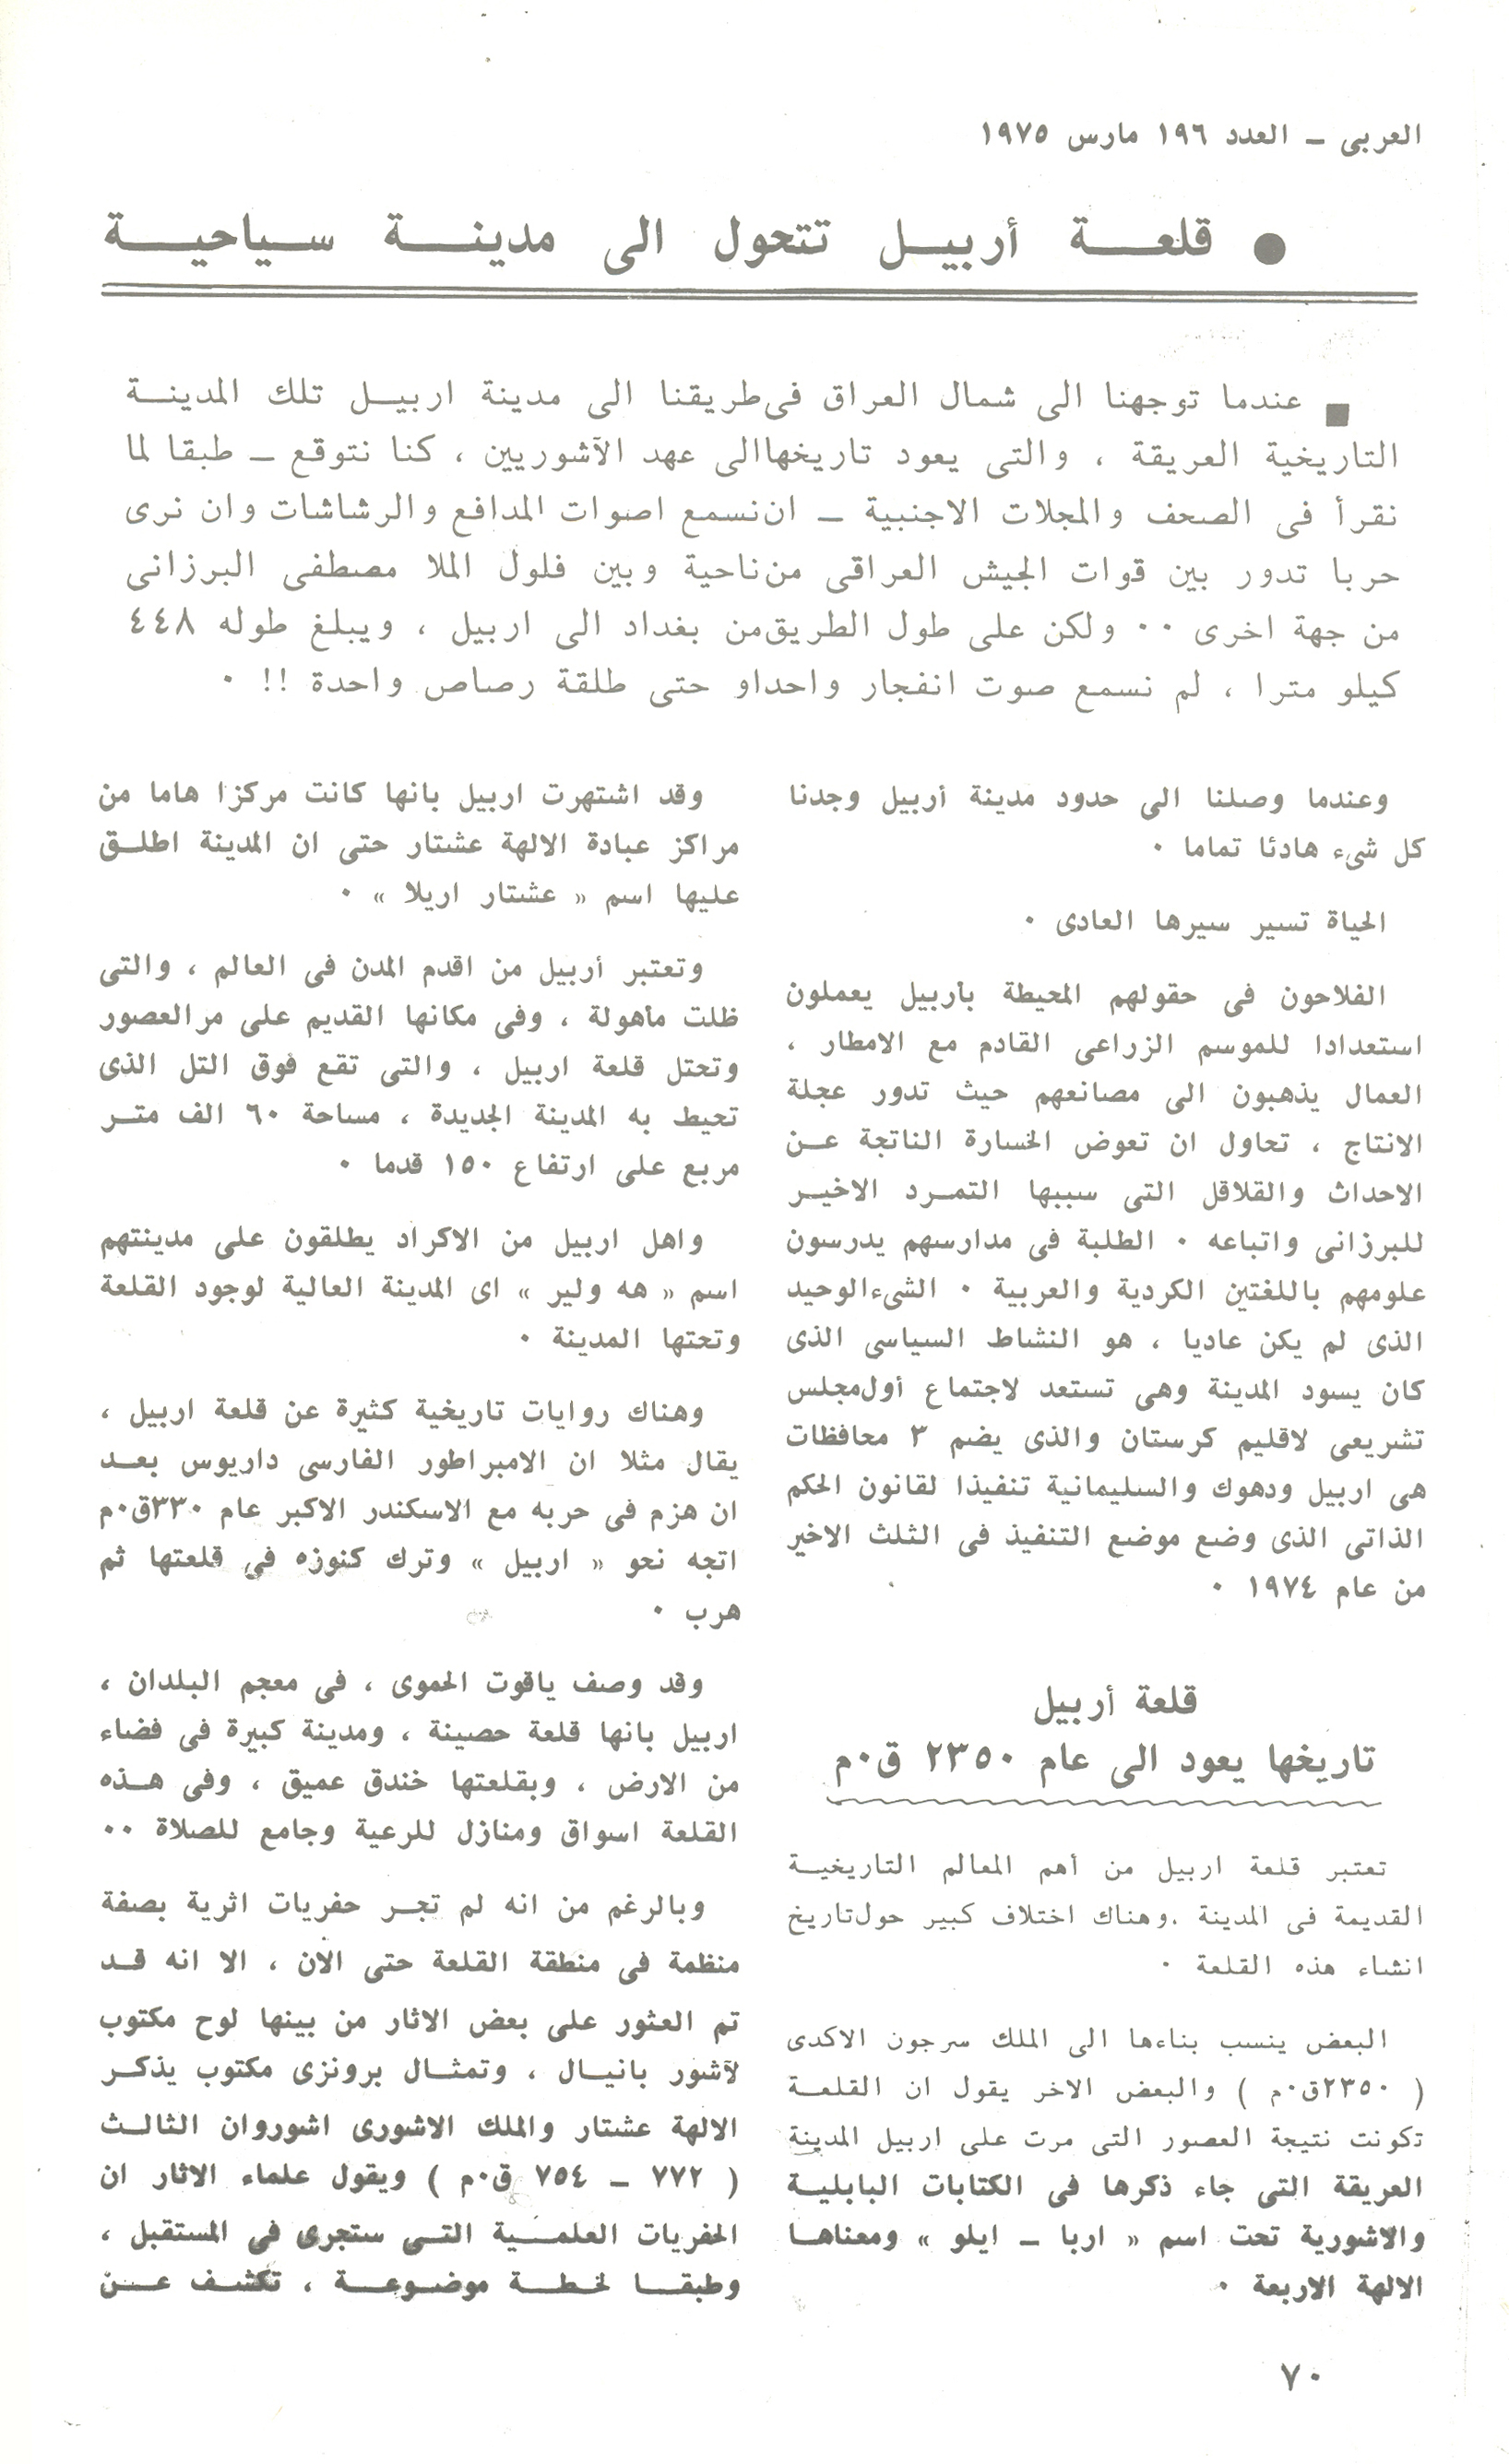 العربى ــ العدد ١٩٦ مارس ١٩٧٥
● قلعة أربيل تتحول الى مدينة سياحية
■ عندما توجهنا الى شمال العراق فى طريقنا الى مدينة اربيل تلك المدينة
التاريخية العريقة ، والتى يعود تاريخها الى عهد الآشوريين ، كنا نتوقع ــ طبقا لما
نقرأ فى الصحف والمجلات الاجنبية ــ ان نسمع اصوات المدافع والرشاشات وان نرى
حربا تدور بين قوات الجيش العراقى من ناحية وبين فلول الملا مصطفى البرزانى
من جهة اخرى ٠٠ ولكن على طول الطريق من بغداد الى اربيل ، ويبلغ طوله ٤٤٨
كيلو مترا ، لم نسمع صوت انفجار واحد او حتى طلقة رصاص واحدة !! ٠
وعندما وصلنا الى حدود مدينة أربيل وجدنا
كل شىء هادئا تماما ٠
الحياة تسير سيرها العادى ٠
الفلاحون فى حقولهم المحيطة بأربيل يعملون
استعدادا للموسم الزراعى القادم مع الامطار ،
العمال يذهبون الى مصانعهم حيث تدور عجلة
الانتاج ، تحاول ان تعوض الخسارة الناتجة عن
الاحداث والقلاقل التى سببها التمرد الاخير
للبرزانى واتباعه ٠ الطلبة فى مدارسهم يدرسون
علومهم باللغتين الكردية والعربية ٠ الشىء الوحيد
الذى لم يكن عاديا ، هو النشاط السياسى الذى
كان يسود المدينة وهى تستعد لاجتماع أول مجلس
تشريعى لاقليم كرستان والذى يضم ٣ محافظات
هى اربيل ودهوك والسليمانية تنفيذا لقانون الحكم
الذاتى الذى وضع موضع التنفيذ فى الثلث الاخير
من عام ١٩٧٤ ٠
قلعة أربيل
تاريخها يعود الى عام ٢٣٥٠ ق٠م
تعتبر قلعة اربيل من أهم المعالم التاريخية
القديمة فى المدينة . وهناك اختلاف كبير حول تاريخ
انشاء هذه القلعة ٠
البعض ينسب بناءها الى الملك سرجون الاكدى
( ٢٣٥٠ق٠م ) والبعض الاخر يقول ان القلعة
تكونت نتيجة العصور التى مرت على اربيل المدينة
العريقة التى جاء ذكرها فى الكتابات البابلية
والاشورية تحت اسم « اربا ــ ايلو » ومعناها
الالهة الاربعة ٠
وقد اشتهرت اربيل بانها كانت مركزا هاما من
مراكز عبادة الالهة عشتار حتى ان المدينة اطلق
عليها اسم « عشتار اريلا » ٠
وتعتبر أربيل من اقدم المدن فى العالم ، والتى
ظلت مأهولة ، وفى مكانها القديم على مر العصور
وتحتل قلعة اربيل ، والتى تقع فوق التل الذى
تحيط به المدينة الجديدة ، مساحة ٦٠ الف متر
مربع على ارتفاع ١٥٠ قدما ٠
واهل اربيل من الاكراد يطلقون على مدينتهم
اسم « هه ولير » اى المدينة العالية لوجود القلعة
وتحتها المدينة ٠
وهناك روايات تاريخية كثيرة عن قلعة اربيل ،
يقال مثلا ان الامبراطور الفارسى داريوس بعد
ان هزم فى حربه مع الاسكندر الاكبر عام ٣٣٠ق٠م
اتجه نحو « اربيل » وترك كنوزه فى قلعتها ثم
هرب ٠
وقد وصف ياقوت الحموى ، فى معجم البلدان ،
اربيل بانها قلعة حصينة ، ومدينة كبيرة فى فضاء
من الارض ، وبقلعتها خندق عميق ، وفى هذه
القلعة اسواق ومنازل للرعية وجامع للصلاة ٠٠
وبالرغم من انه لم تجر حفريات اثرية بصفة
منظمة فى منطقة القلعة حتى الآن ، الا انه قد
تم العثور على بعض الاثار من بينها لوح مكتوب
لآشور بانيال ، وتمثال برونزى مكتوب يذكر
الالهة عشتار والملك الاشورى اشوروان الثالث
( ٧٧٢ ــ ٧٥٤ ق٠م ) ويقول علماء الاثار ان
الحفريات العلمية التى ستجرى فى المستقبل ،
وطبقا لخطة موضوعة ، تكشف عن
٧٠